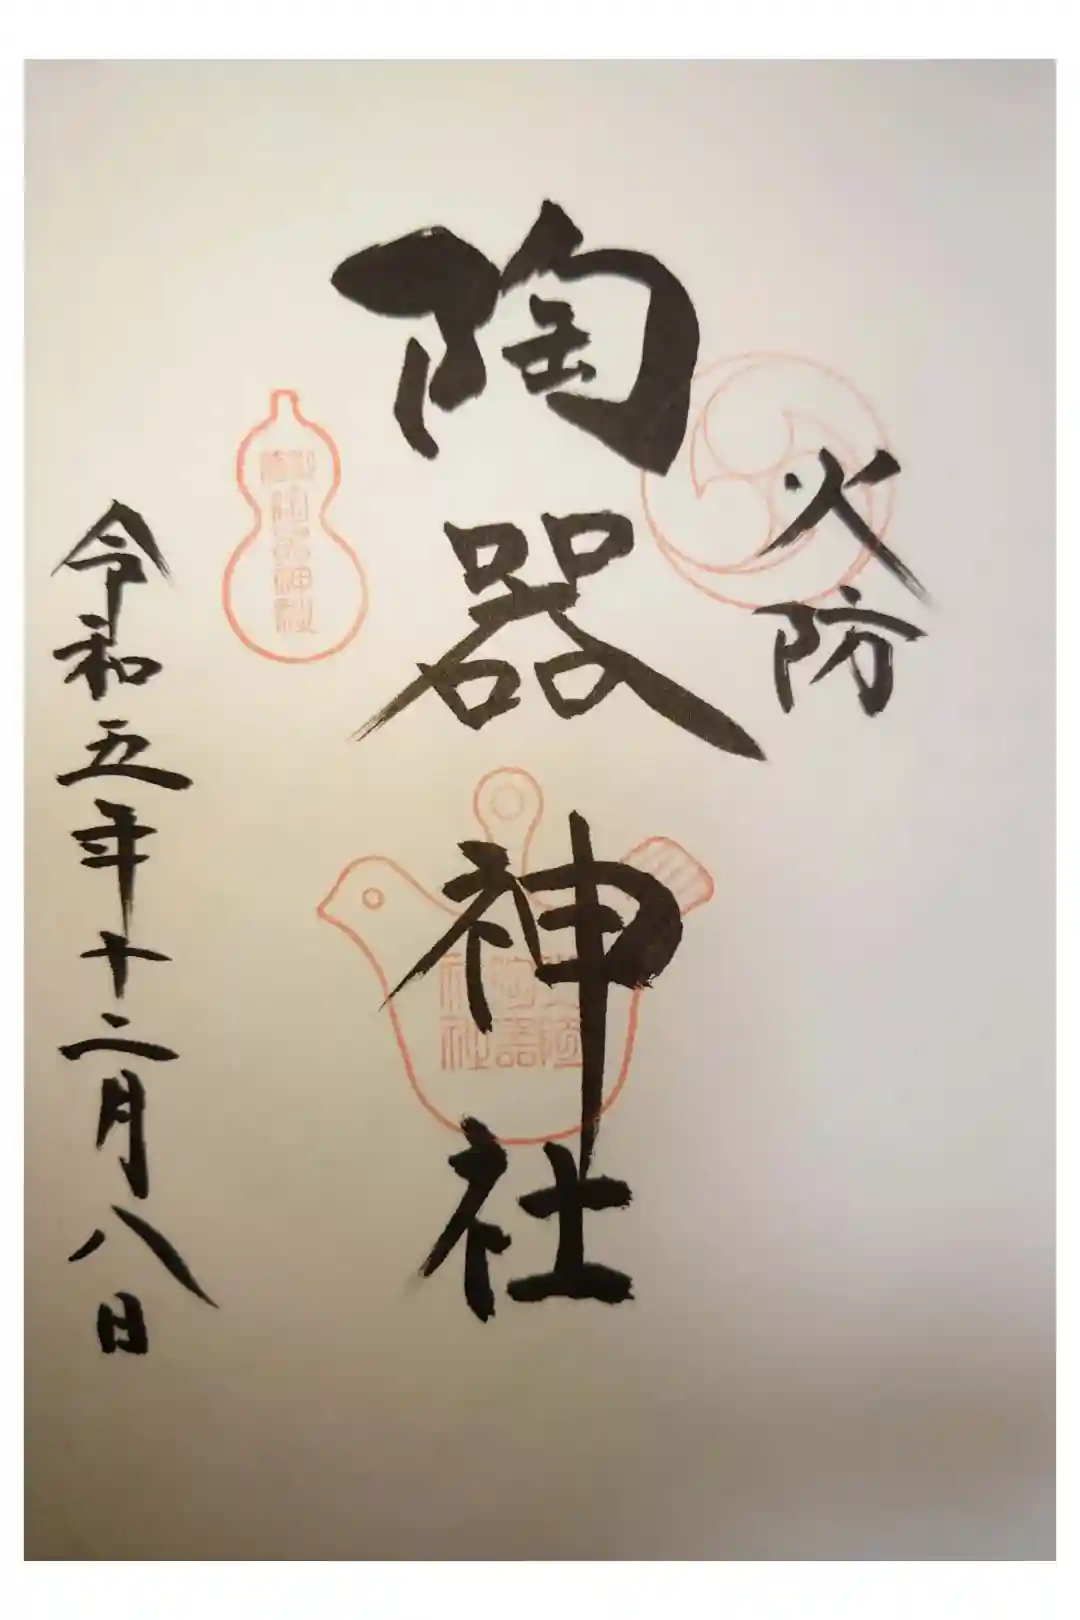 火防
陶器神社
令和五年十二月八日
陶器神社